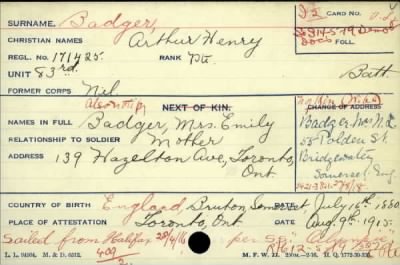 SURNAME, Badger, CARD NO.
CHRISTIAN NAMES Arthur Henry FOLL.
REGL. NO. 171425. RANK Pte.
UNIT 83rd. Batt.
FORMER CORPS Nil
Also notify NEXT OF KIN. CHANGE OF ADDRESS
NAMES IN FULL Badger, Mrs. Emily Badger Mrs
RELATIONSHIP TO SOLDIER Mother 55 Polden St.
ADDRESS 139 Hazelton Ave, Toronto, Bridgewater
Ont Somerset. Eng
COUNTRY OF BIRTH England, Bruton, Somerset, July 16th,
PLACE OF ATTESTATION Toronto, Ont Aug. 9th, 1915.
Sailed from Halifax 28/4/16 per S.S.
L. L. 94904. M. & D. 6512. M. F. W. 22.